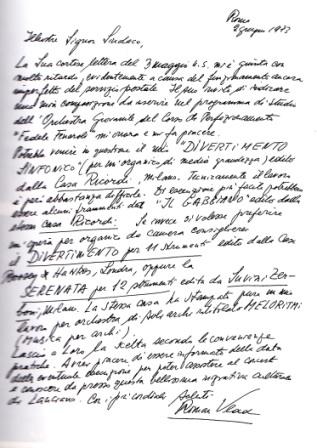 Roma
2 giugno 1973
Illustre Signor Sindaco,
La Sua cortese lettera del 3 maggio u.s. mi è giunta con
molto ritardo, evidentemente a causa del funzionamento ancora
imperfetto del servizio postale. Il suo invito di indicare
una mia composizione da inserire nel programma di studio
dell'Orchestra Giovanile del Corso di Perfezionamento
"Fedele Fenaroli" mi onora e mi fa piacere.
Potrebbe venire in questione il mio "DIVERTIMENTO
SINFONICO" (per un organico di media grandezza) edito
dalla Casa Ricordi, Milano. Tecnicamente il lavoro
è però abbastanza difficile. Di esecuzione più facile potrebbero
essere alcuni frammenti dal "IL GABBIANO" edito dalla
stessa Casa Ricordi. Se invece si volesse preferire
un'opera per organico da camera consiglierei
il DIVERTIMENTO per 11 strumenti edito dalla Casa
Boosey & Hawkes, Londra, oppure la
SERENATA per 12 strumenti edita da Suvini Zer-
boni, Milano. La stessa Casa ha stampato pure un mio
lavoro per orchestra di soli archi intitolato MELORITMI
(Musica per archi).
Lascio a Loro la scelta secondo le convenienze
pratiche. Avrei piacere di essere informato della data
della eventuale esecuzione per poter assistere al concerto
e conoscere da presso questa bellissima iniziativa culturale
di Lanciano. Con i più cordiali saluti
Roman Vlad